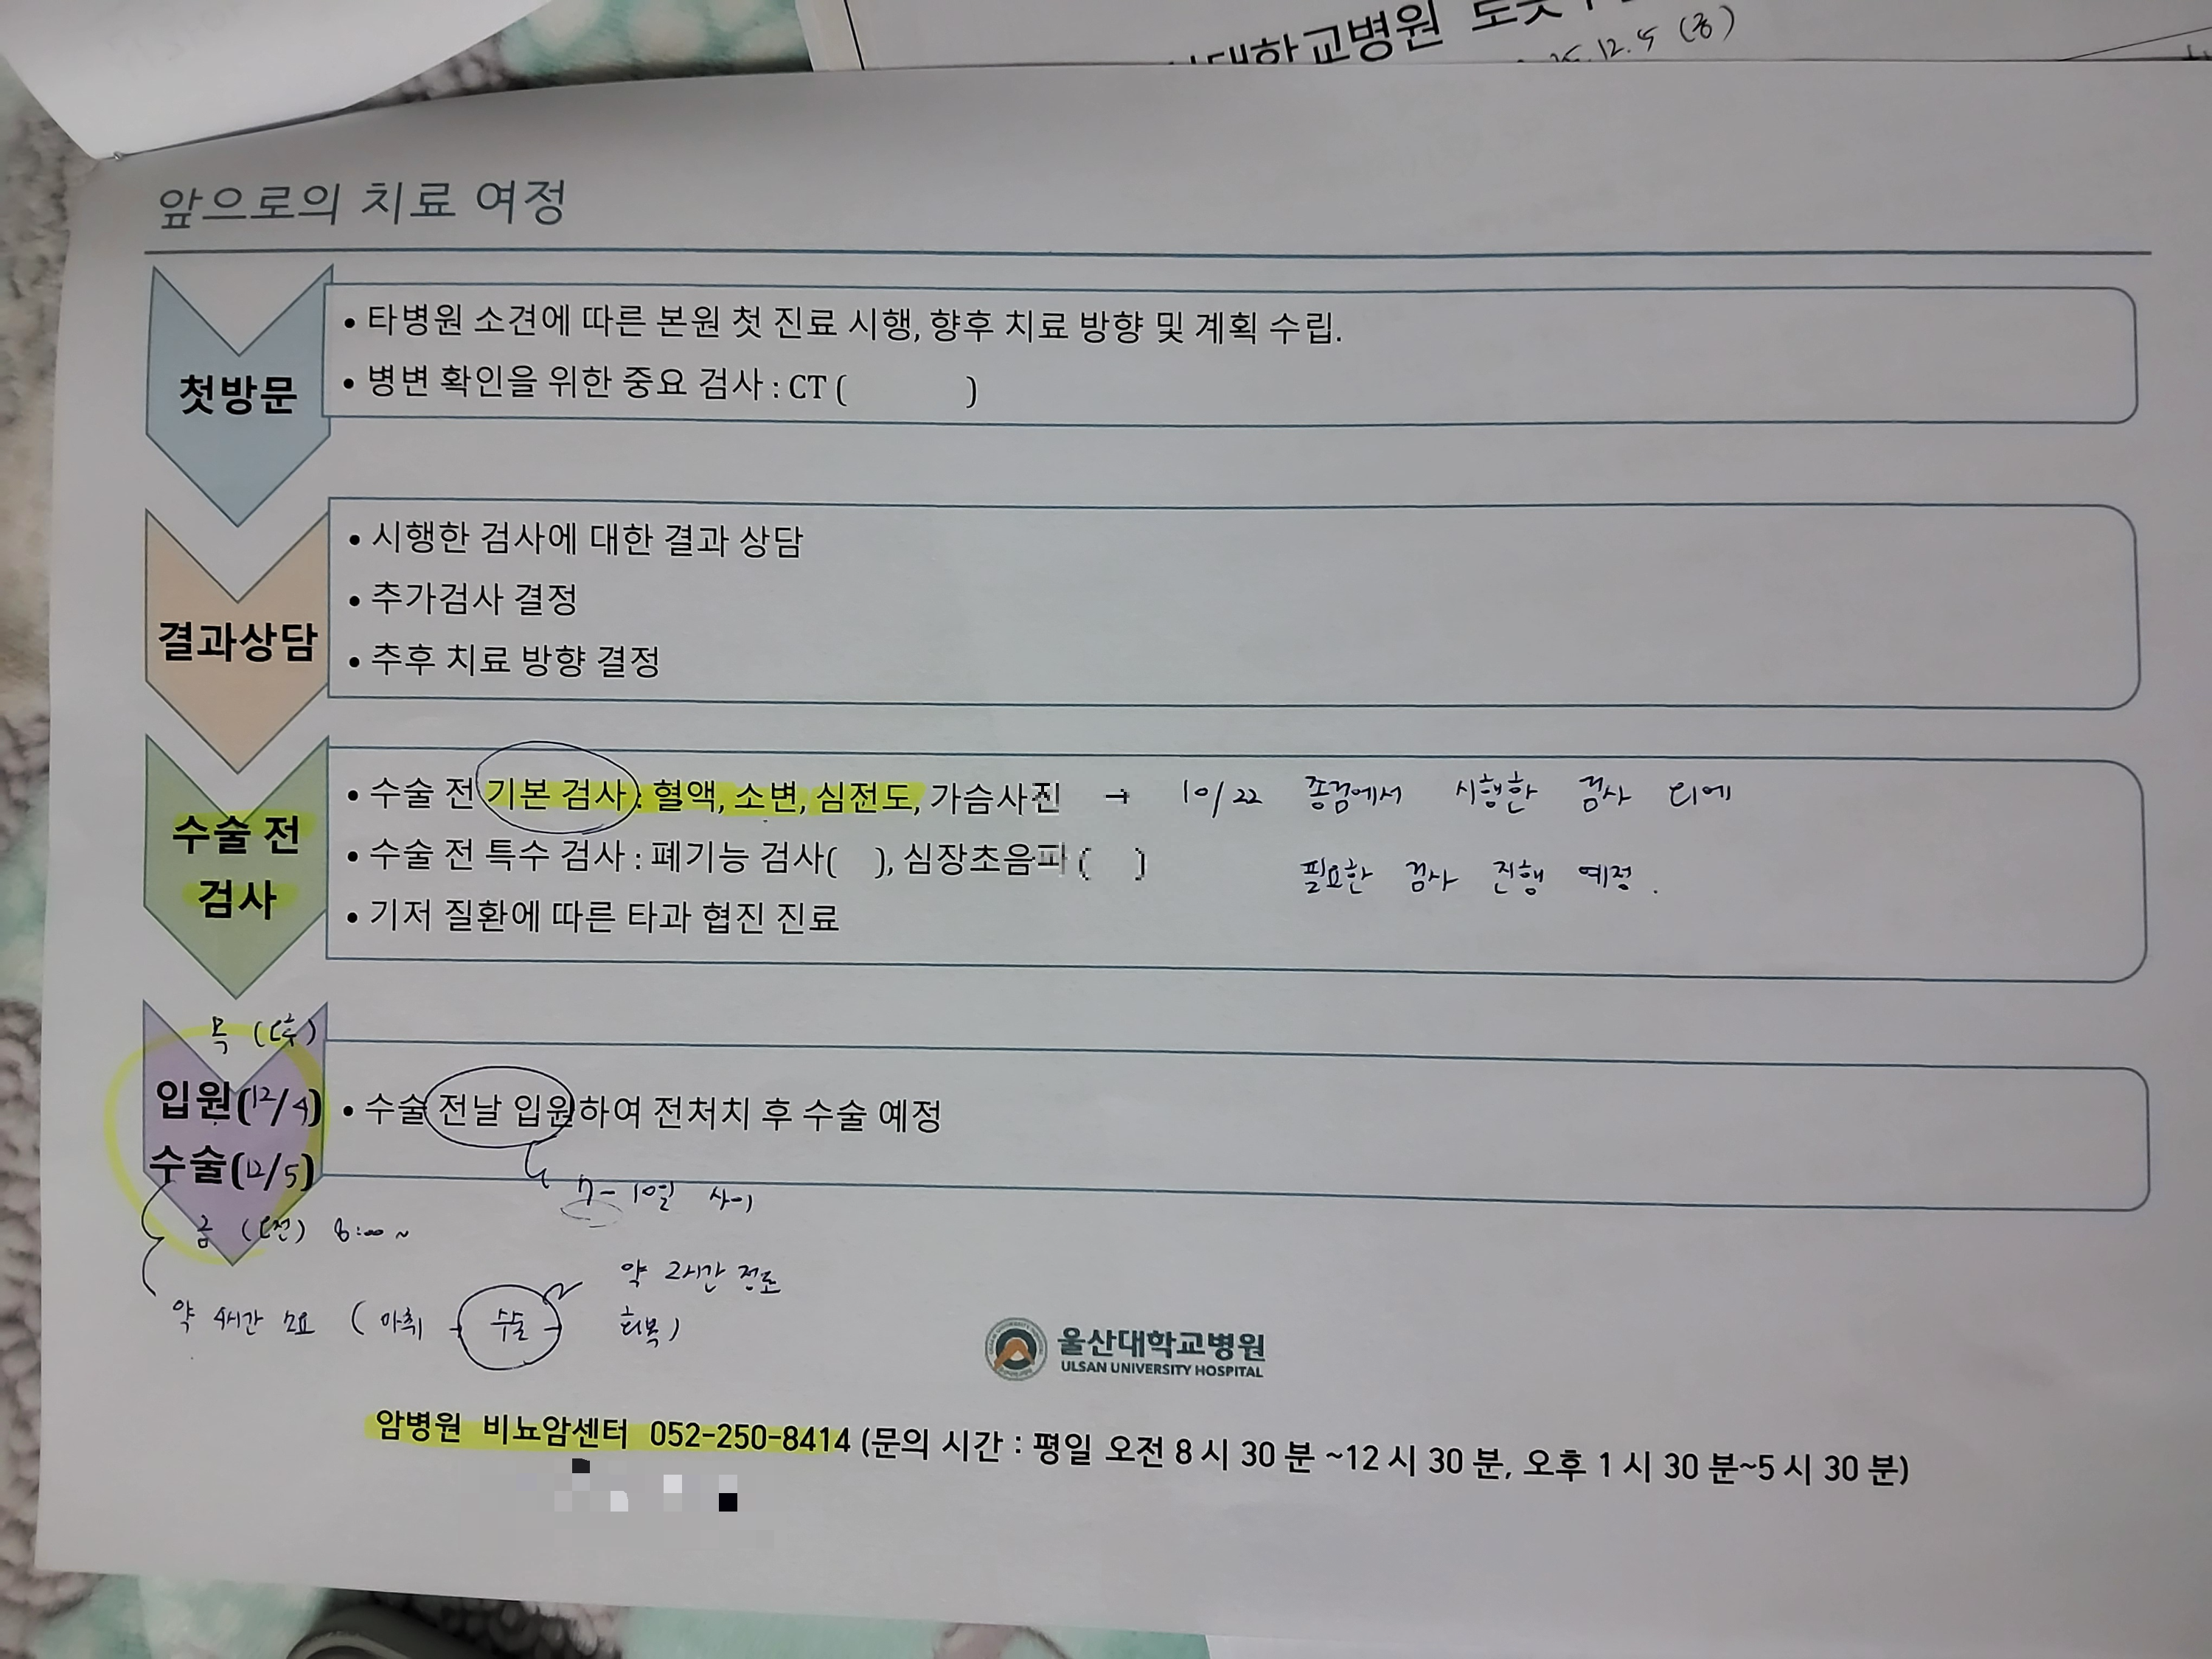 대학교병원
12.5 (금)
앞으로의 치료 여정
첫방문
• 타병원 소견에 따른 본원 첫 진료 시행, 향후 치료 방향 및 계획 수립.
• 병변 확인을 위한 중요 검사 : CT ( )
결과상담
• 시행한 검사에 대한 결과 상담
• 추가검사 결정
• 추후 치료 방향 결정
수술 전
검사
• 수술 전 기본 검사 : 혈액, 소변, 심전도, 가슴사진 → 10/22 종검에서 시행한 검사 외에
• 수술 전 특수 검사 : 폐기능 검사( ), 심장초음파 ( ) 필요한 검사 진행 예정.
• 기저 질환에 따른 타과 협진 진료
목 (오후)
입원(12/4)
수술(12/5)
• 수술 전날 입원하여 전처치 후 수술 예정
7-10일 사이
금 (오전) 8:00 ~
약 2시간 정도
약 4시간 소요 ( 마취 - 수술 - 회복 )
울산대학교병원
ULSAN UNIVERSITY HOSPITAL
암병원 비뇨암센터 052-250-8414 (문의 시간 : 평일 오전 8 시 30 분 ~12 시 30 분, 오후 1 시 30 분~5 시 30 분)